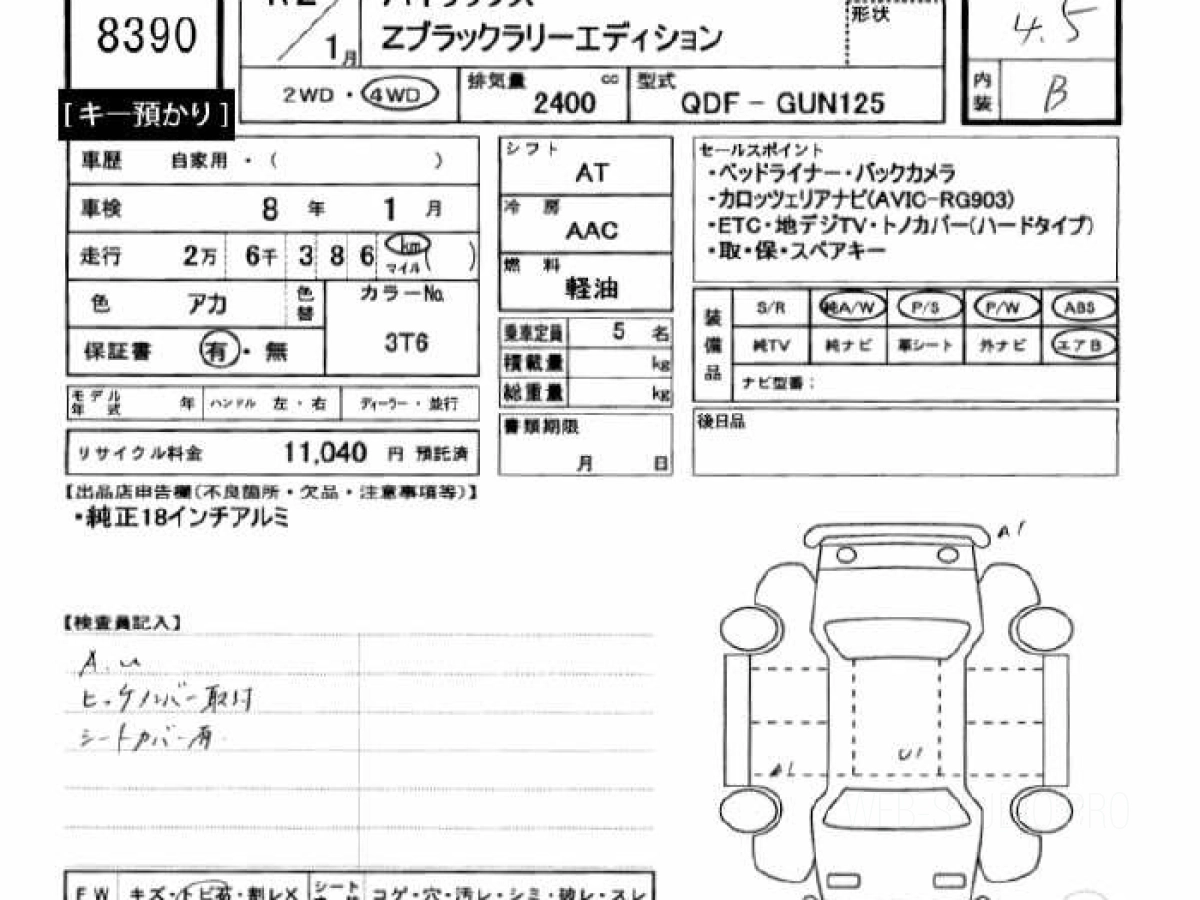 8390
[キー預かり]
1月
Zブラックラリーエディション
形状
4.5
2WD・4WD
排気量 cc
2400
型式
QDF－GUN125
内装
B
車歴 自家用・（ ）
車検 8年 1月
走行 2万 6千 3 8 6 km マイル( )
色 アカ
色替
カラーNo.
3T6
保証書 有・無
モデル年式 年
ハンドル 左・右
ディーラー・並行
リサイクル料金 11,040 円 預託済
シフト
AT
冷房
AAC
燃料
軽油
乗車定員 5 名
積載量 kg
総重量 kg
書類期限
月 日
セールスポイント
・ベッドライナー・バックカメラ
・カロッツェリアナビ(AVIC-RG903)
・ETC・地デジTV・トノカバー(ハードタイプ)
・取・保・スペアキー
装備品
S/R 純A/W P/S P/W ABS
純TV 純ナビ 革シート 外ナビ エアB
ナビ型番：
後日品
【出品店申告欄(不良箇所・欠品・注意事項等)】
・純正18インチアルミ
A1
【検査員記入】
A.u
ヒッチメンバー取付
シートカバー有
U1
A1
WEB-STUDIO PRO
FW キズ・トビ石・割レX
シート
コゲ・穴・汚レ・シミ・破レ・スレ